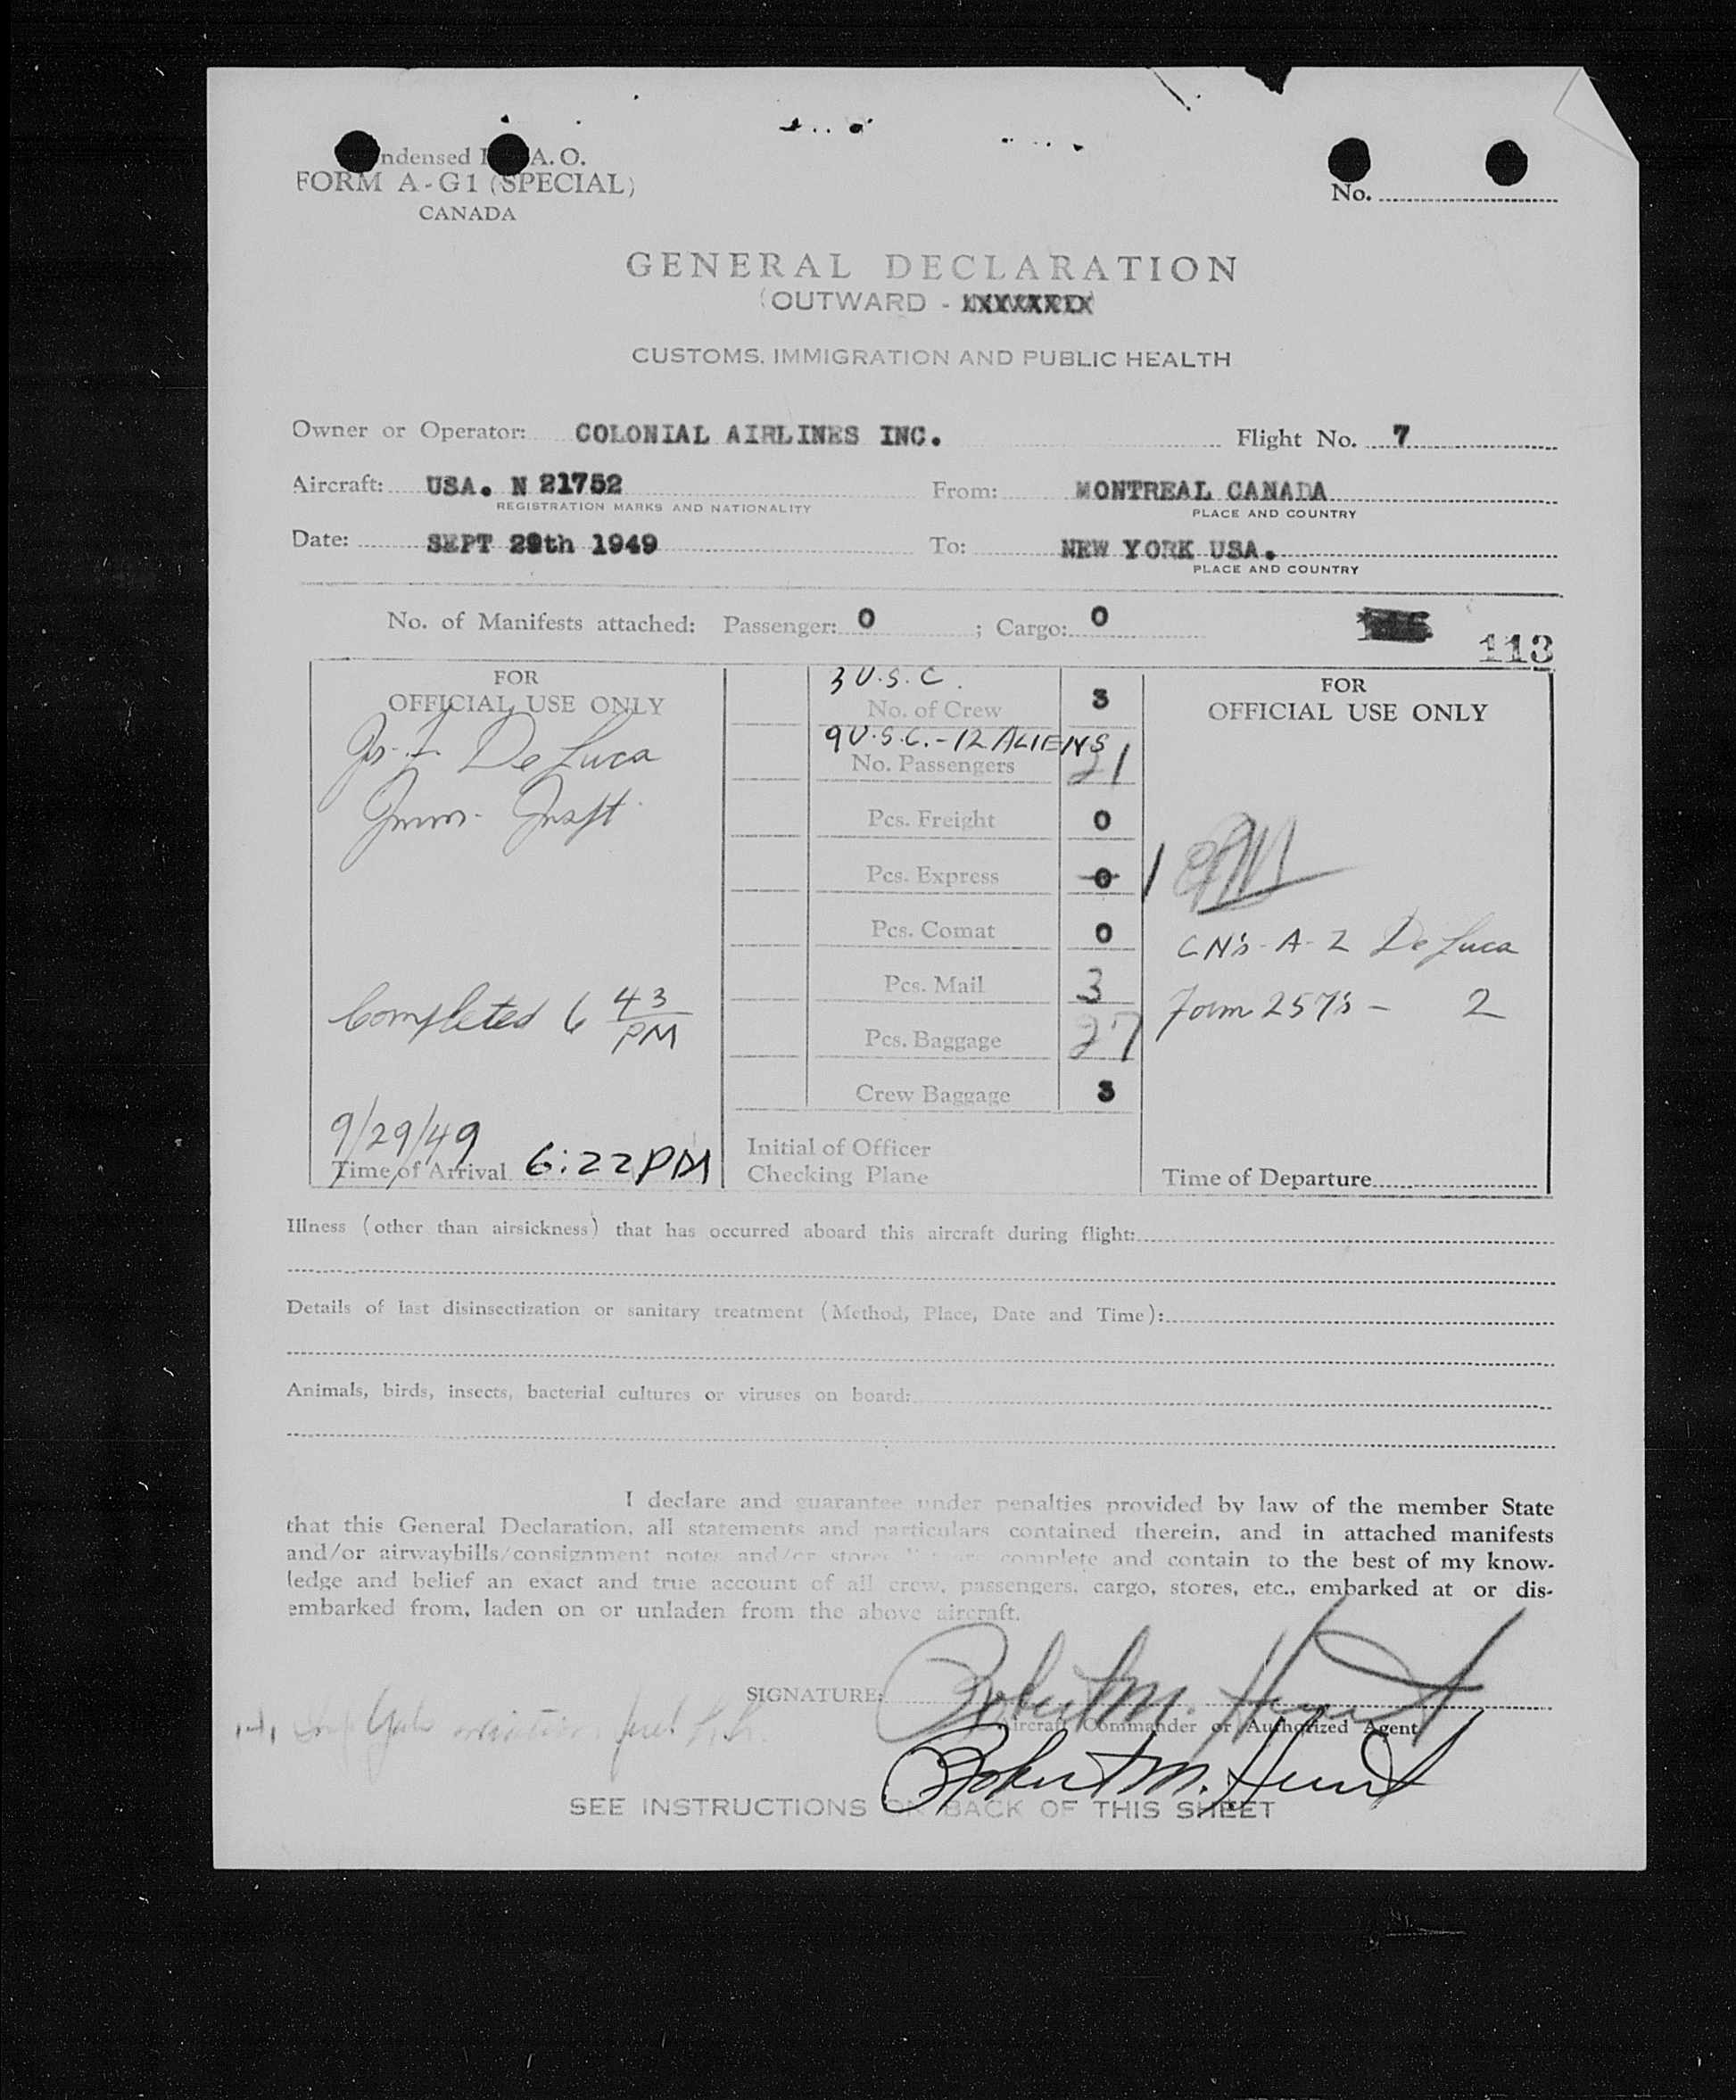 ndensed I A. O.
FORM A-G1 (SPECIAL)
CANADA
No.
GENERAL DECLARATION
(OUTWARD - XXXXXXXX)
CUSTOMS, IMMIGRATION AND PUBLIC HEALTH
Owner or Operator: COLONIAL AIRLINES INC. Flight No. 7
Aircraft: USA. N 21752 From: MONTREAL CANADA
REGISTRATION MARKS AND NATIONALITY PLACE AND COUNTRY
Date: SEPT 29th 1949 To: NEW YORK USA.
PLACE AND COUNTRY
No. of Manifests attached: Passenger: 0 ; Cargo: 0
113
FOR
OFFICIAL USE ONLY
De Luca
Imm. Inspt.
Completed 6 43 PM
9/29/49
Time of Arrival 6:22 PM
3 U.S.C.
No. of Crew 3
9 U.S.C. - 12 ALIENS
No. Passengers 21
Pcs. Freight 0
Pcs. Express 0 1
Pcs. Comat 0
Pcs. Mail 3
Pcs. Baggage 27
Crew Baggage 3
Initial of Officer
Checking Plane
FOR
OFFICIAL USE ONLY
CN's - A - Z De Luca
Form 257's - 2
Time of Departure
Illness (other than airsickness) that has occurred aboard this aircraft during flight:
Details of last disinsectization or sanitary treatment (Method, Place, Date and Time):
Animals, birds, insects, bacterial cultures or viruses on board:
I declare and guarantee under penalties provided by law of the member State
that this General Declaration, all statements and particulars contained therein, and in attached manifests
and/or airwaybills/consignment notes and/or stores complete and contain to the best of my know-
ledge and belief an exact and true account of all crew, passengers, cargo, stores, etc., embarked at or dis-
embarked from, laden on or unladen from the above aircraft.
SIGNATURE: Robert M. Hurst
Aircraft Commander or Authorized Agent
Robert M. Hurst
SEE INSTRUCTIONS ON BACK OF THIS SHEET